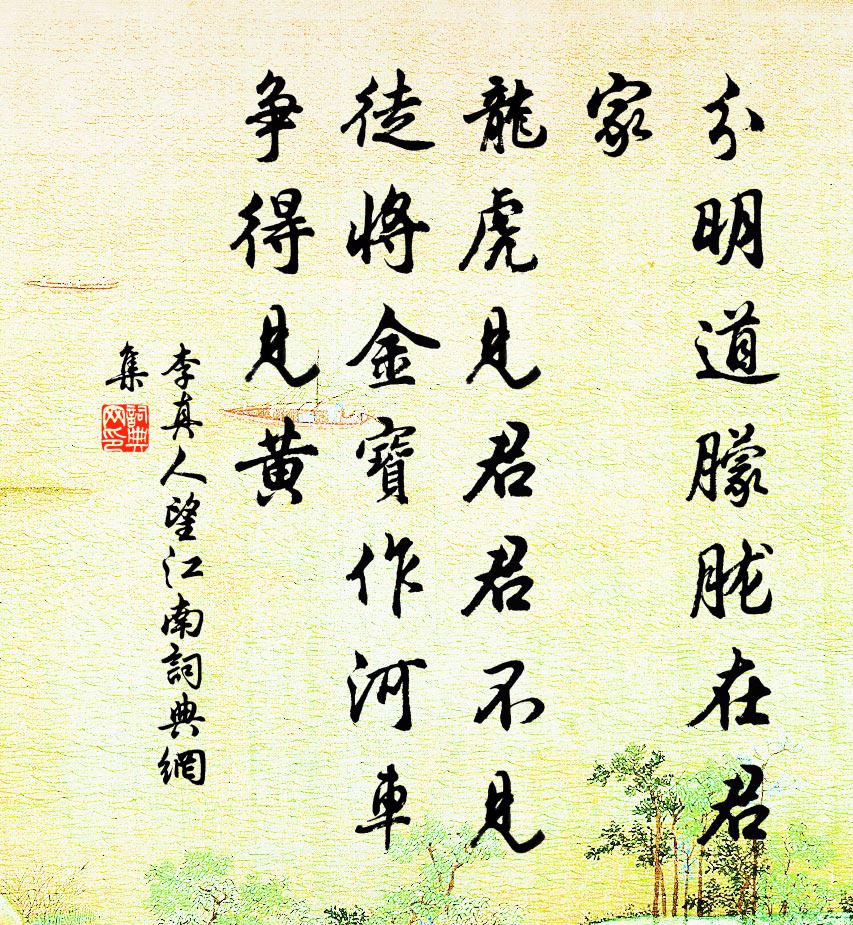 分明道朦朧在君
家
龍虎見君君不見
徒將金寶作河車
爭得見黃
李真人望江南詞典網
集
詞典
网印